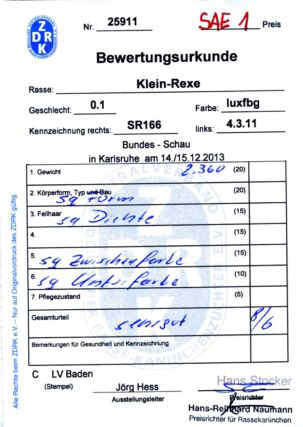 ZDRK
Nr. 25911 SAE 1 Preis
Bewertungsurkunde
Rasse: Klein-Rexe
Geschlecht: 0.1 Farbe: luxfbg
Kennzeichnung rechts: SR166 links: 4.3.11
Bundes - Schau
in Karlsruhe am 14./15.12.2013
1. Gewicht 2.360 (20)
2. Körperform, Typ und Bau sg Form (20)
3. Fellhaar sg Dichte (15)
4. (15)
5. sg Zwischenfarbe (15)
6. sg Unterfarbe (10)
7. Pflegezustand (5)
Gesamturteil sehr gut 8/6
Bemerkungen für Gesundheit und Kennzeichnung
C LV Baden Hans Stocker
(Stempel) Jörg Hess Preisrichter
Ausstellungsleiter Hans-Reinhard Naumann
Preisrichter für Rassekaninchen
Alle Rechte beim ZDRK e.V. - Nur auf Originalvordruck des ZDRK gültig